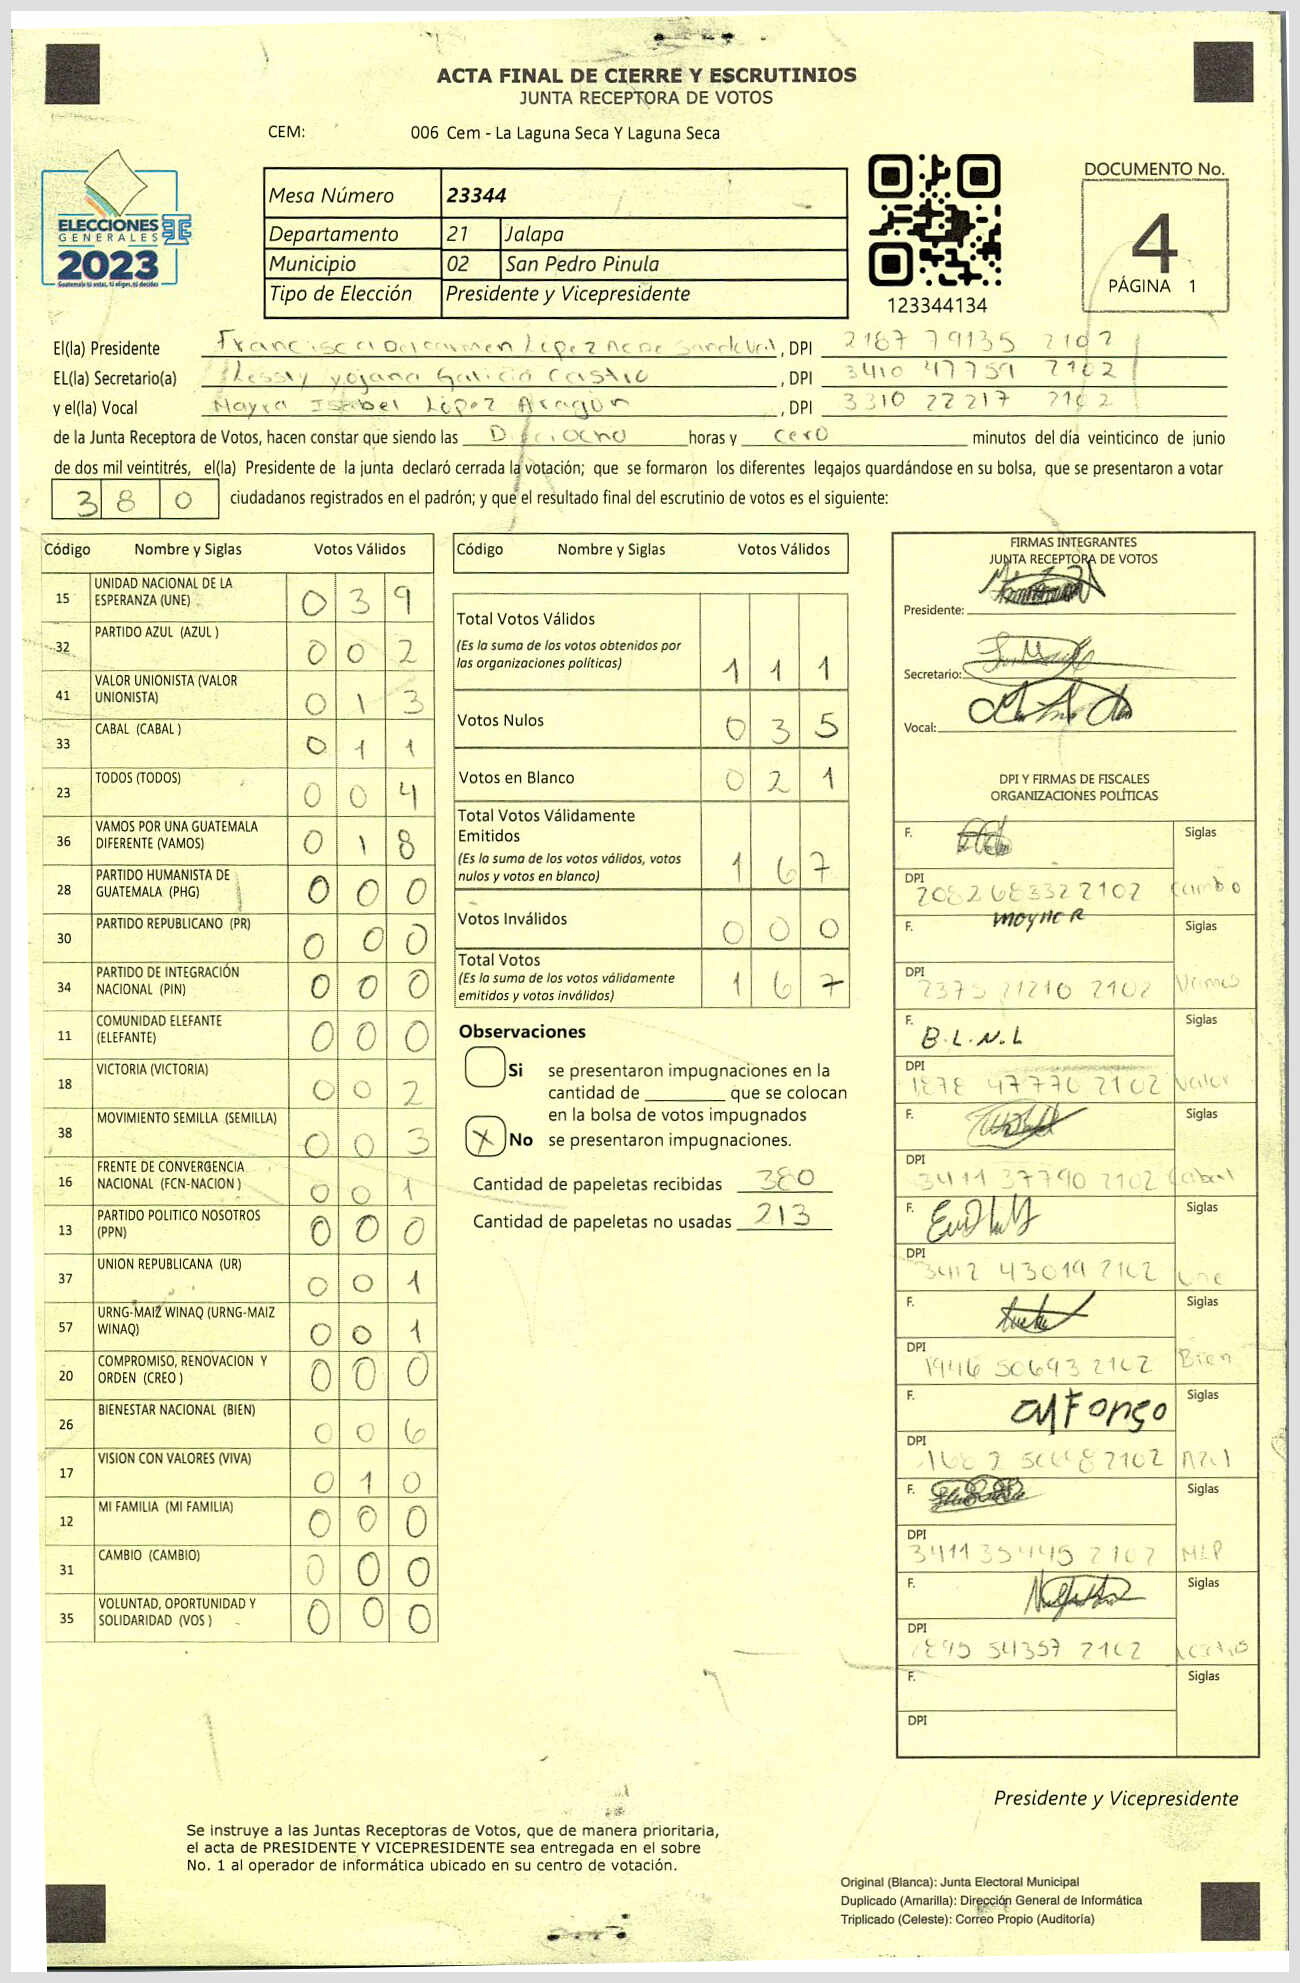 ACTA FINAL DE CIERRE Y ESCRUTINIOS
JUNTA RECEPTORA DE VOTOS
CEM: 006 Cem - La Laguna Seca Y Laguna Seca
ELECCIONES
GENERALES
2023
Guatemala tú votas, tú eliges, tú decides
Mesa Número 23344
Departamento 21 Jalapa
Municipio 02 San Pedro Pinula
Tipo de Elección Presidente y Vicepresidente
123344134
DOCUMENTO No.
4
PÁGINA 1
El(la) Presidente López Sandoval, DPI 2187 79135 2102
EL(la) Secretario(a) yojana Galicia Castro, DPI 3410 47759 2102
y el(la) Vocal Mayra Isabel López Aragón, DPI 3310 22217 2102
de la Junta Receptora de Votos, hacen constar que siendo las Dieciocho horas y cero minutos del día veinticinco de junio
de dos mil veintitrés, el(la) Presidente de la junta declaró cerrada la votación; que se formaron los diferentes legajos quardándose en su bolsa, que se presentaron a votar
380 ciudadanos registrados en el padrón; y que el resultado final del escrutinio de votos es el siguiente:
Código Nombre y Siglas Votos Válidos
15 UNIDAD NACIONAL DE LA ESPERANZA (UNE) 0 3 9
32 PARTIDO AZUL (AZUL ) 0 0 2
41 VALOR UNIONISTA (VALOR UNIONISTA) 0 1 3
33 CABAL (CABAL ) 0 1 1
23 TODOS (TODOS) 0 0 4
36 VAMOS POR UNA GUATEMALA DIFERENTE (VAMOS) 0 1 8
28 PARTIDO HUMANISTA DE GUATEMALA (PHG) 0 0 0
30 PARTIDO REPUBLICANO (PR) 0 0 0
34 PARTIDO DE INTEGRACIÓN NACIONAL (PIN) 0 0 0
11 COMUNIDAD ELEFANTE (ELEFANTE) 0 0 0
18 VICTORIA (VICTORIA) 0 0 2
38 MOVIMIENTO SEMILLA (SEMILLA) 0 0 3
16 FRENTE DE CONVERGENCIA NACIONAL (FCN-NACION ) 0 0 1
13 PARTIDO POLITICO NOSOTROS (PPN) 0 0 0
37 UNION REPUBLICANA (UR) 0 0 1
57 URNG-MAIZ WINAQ (URNG-MAIZ WINAQ) 0 0 1
20 COMPROMISO, RENOVACION Y ORDEN (CREO ) 0 0 0
26 BIENESTAR NACIONAL (BIEN) 0 0 6
17 VISION CON VALORES (VIVA) 0 1 0
12 MI FAMILIA (MI FAMILIA) 0 0 0
31 CAMBIO (CAMBIO) 0 0 0
35 VOLUNTAD, OPORTUNIDAD Y SOLIDARIDAD (VOS ) 0 0 0
Código Nombre y Siglas Votos Válidos
Total Votos Válidos 1 1 1
(Es la suma de los votos obtenidos por
las organizaciones políticas)
Votos Nulos 0 3 5
Votos en Blanco 0 2 1
Total Votos Válidamente
Emitidos 1 6 7
(Es la suma de los votos válidos, votos
nulos y votos en blanco)
Votos Inválidos 0 0 0
Total Votos 1 6 7
(Es la suma de los votos válidamente
emitidos y votos inválidos)
Observaciones
Si se presentaron impugnaciones en la
cantidad de ________ que se colocan
en la bolsa de votos impugnados
X No se presentaron impugnaciones.
Cantidad de papeletas recibidas 380
Cantidad de papeletas no usadas 213
FIRMAS INTEGRANTES
JUNTA RECEPTORA DE VOTOS
Presidente:
Secretario:
Vocal:
DPI Y FIRMAS DE FISCALES
ORGANIZACIONES POLÍTICAS
F. Siglas
DPI 2082 68332 2102 Cambio
F. Siglas
DPI 2375 21210 2102 Vamos
F. B.L.N.L Siglas
DPI 1878 47770 2102 Valor
F. Siglas
DPI 3411 37790 2102 Cabal
F. Siglas
DPI 3412 43019 2102 Une
F. Siglas
DPI 1946 50693 2102 Bien
F. alfonso Siglas
DPI 2102 Azul
F. Siglas
DPI 3411 35445 2102 MLP
F. Siglas
DPI 1895 54357 2102
F. Siglas
DPI
Presidente y Vicepresidente
Se instruye a las Juntas Receptoras de Votos, que de manera prioritaria,
el acta de PRESIDENTE Y VICEPRESIDENTE sea entregada en el sobre
No. 1 al operador de informática ubicado en su centro de votación.
Original (Blanca): Junta Electoral Municipal
Duplicado (Amarilla): Dirección General de Informática
Triplicado (Celeste): Correo Propio (Auditoría)